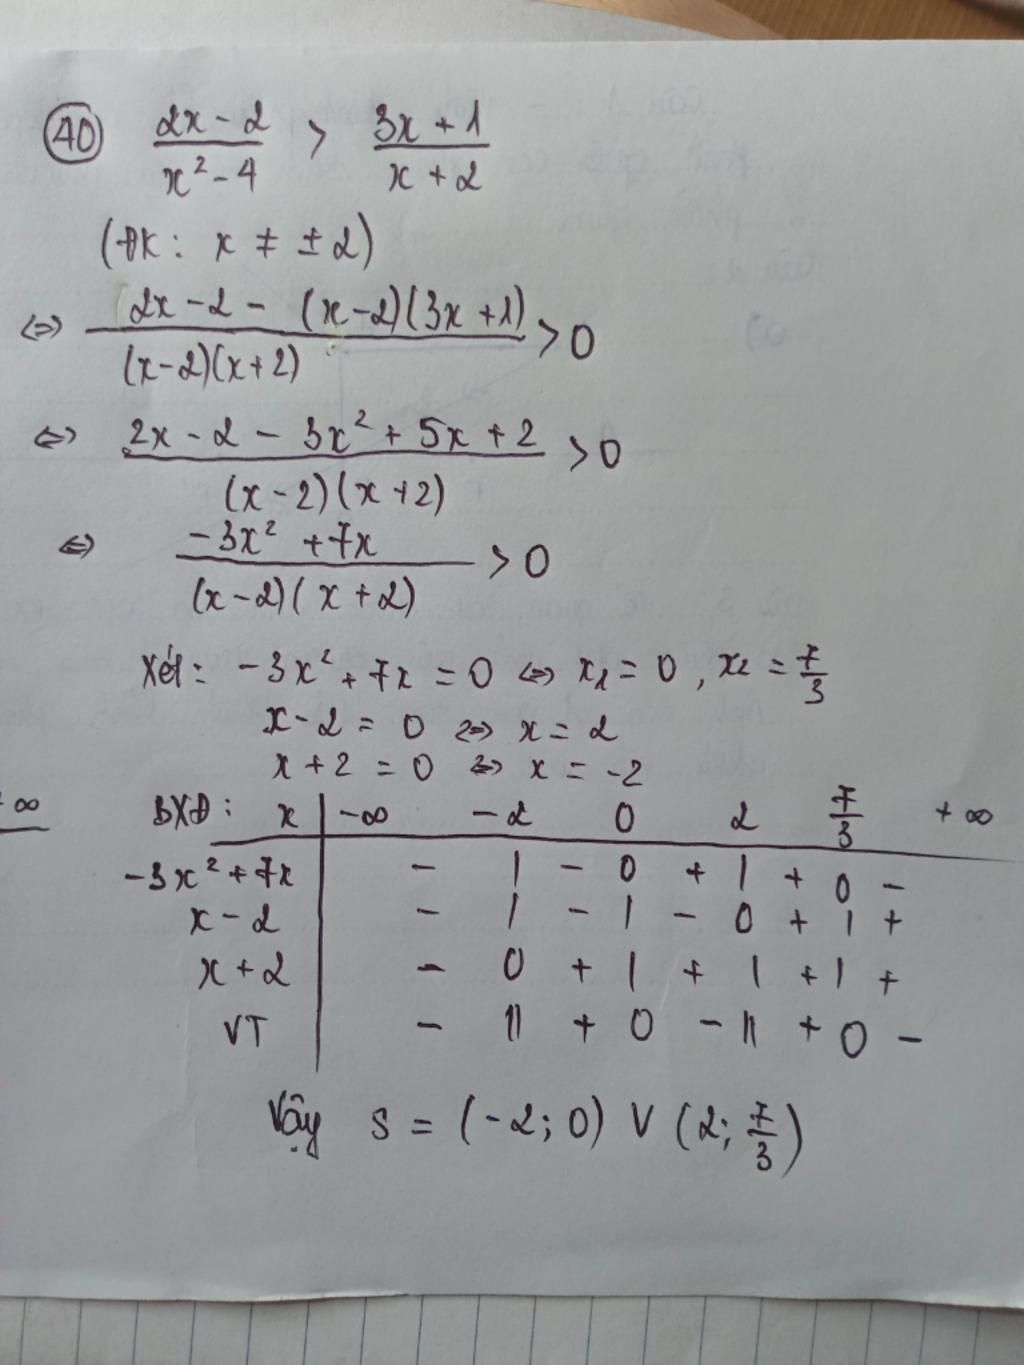 40 (2x - 2)/(x² - 4) > (3x + 1)/(x + 2)
(ĐK: x ≠ ± 2)
⇔ (2x - 2 - (x-2)(3x+1))/((x-2)(x+2)) > 0
⇔ (2x - 2 - 3x² + 5x + 2)/((x-2)(x+2)) > 0
⇔ (-3x² + 7x)/((x-2)(x+2)) > 0
Xét: -3x² + 7x = 0 ⇔ x₁ = 0, x₂ = 7/3
x - 2 = 0 ⇔ x = 2
x + 2 = 0 ⇔ x = -2
∞
BXD: x | -∞ -2 0 2 7/3 +∞
-3x² + 7x | - | - 0 + | + 0 -
x - 2 | - | - | - 0 + | +
x + 2 | - 0 + | + | + | +
VT | - || + 0 - || + 0 -
Vậy S = (-2; 0) V (2; 7/3)